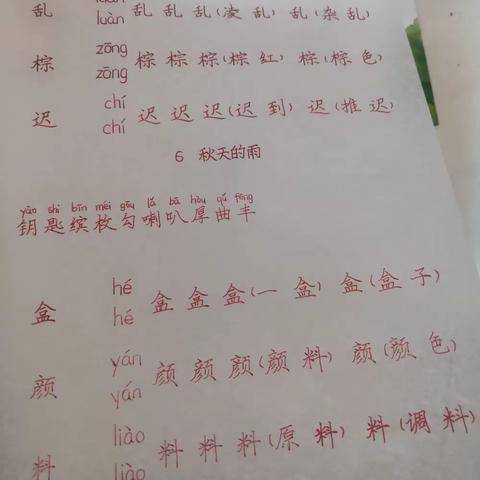 luàn
乱 luàn 乱 乱 乱(凌 乱) 乱(杂 乱)
zōng
棕 zōng 棕 棕 棕(棕 红) 棕(棕 色)
chí
迟 chí 迟 迟 迟(迟 到) 迟(推 迟)
6 秋天的雨
yào shi bīn méi gōu lǎ bā hòu qǔ fēng
钥匙缤枚勾喇叭厚曲丰
hé
盒 hé 盒 盒 盒(一 盒) 盒(盒 子)
yán
颜 yán 颜 颜 颜(颜 料) 颜(颜 色)
liào
料 liào 料 料 料(原 料) 料(调 料)